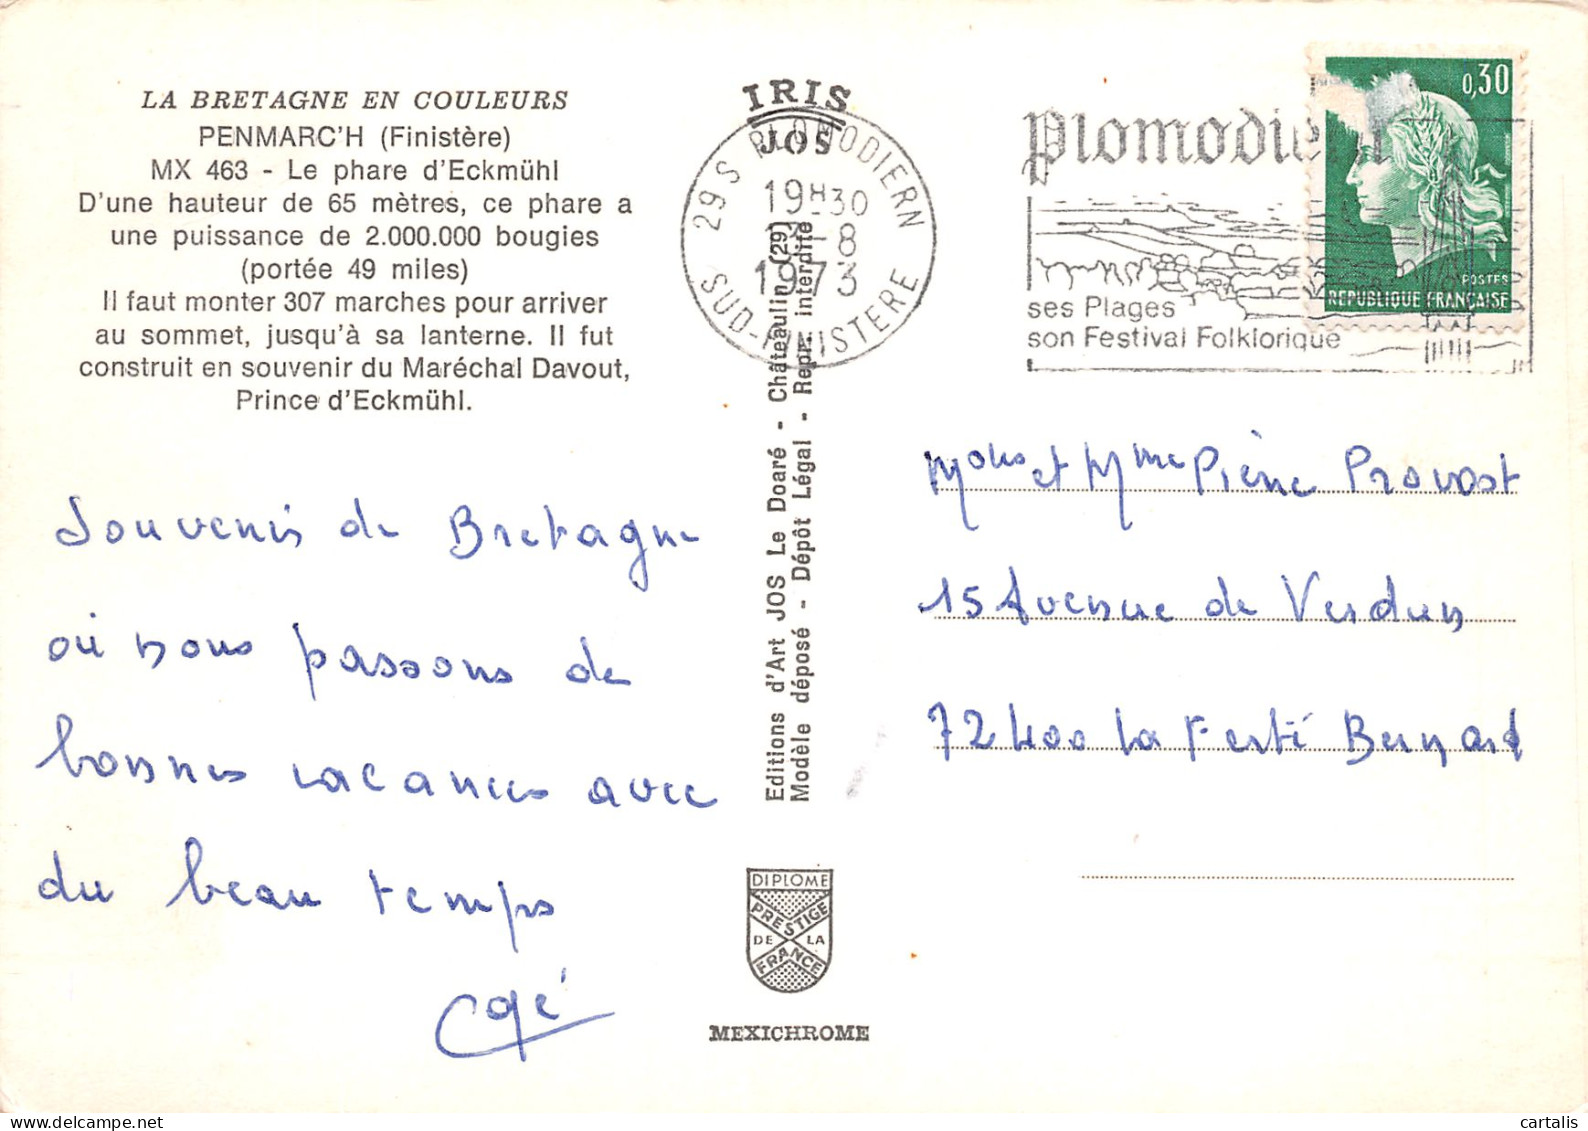 LA BRETAGNE EN COULEURS
PENMARC'H (Finistère)
MX 463 - Le phare d'Eckmühl
D'une hauteur de 65 mètres, ce phare a
une puissance de 2.000.000 bougies
(portée 49 miles)
Il faut monter 307 marches pour arriver
au sommet, jusqu'à sa lanterne. Il fut
construit en souvenir du Maréchal Davout,
Prince d'Eckmühl.
Souvenirs de Bretagne
où nous passons de
bonnes vacances avec
du beau temps
IRIS
JOS
29 S PLOMODIERN
19H30
-8
1973
SUD-FINISTERE
Editions d'Art JOS Le Doaré - Châteaulin (29)
Modèle déposé - Dépôt Légal - Repr. interdite
DIPLOME
PRESTIGE
DE LA
FRANCE
MEXICHROME
Plomodiern
ses Plages
son Festival Folklorique
0,30
POSTES
REPUBLIQUE FRANÇAISE
Mons et Mme Pierre Provost
15 Avenue de Verdun
72400 La Ferté Bernard
cartalis
www.delcampe.net